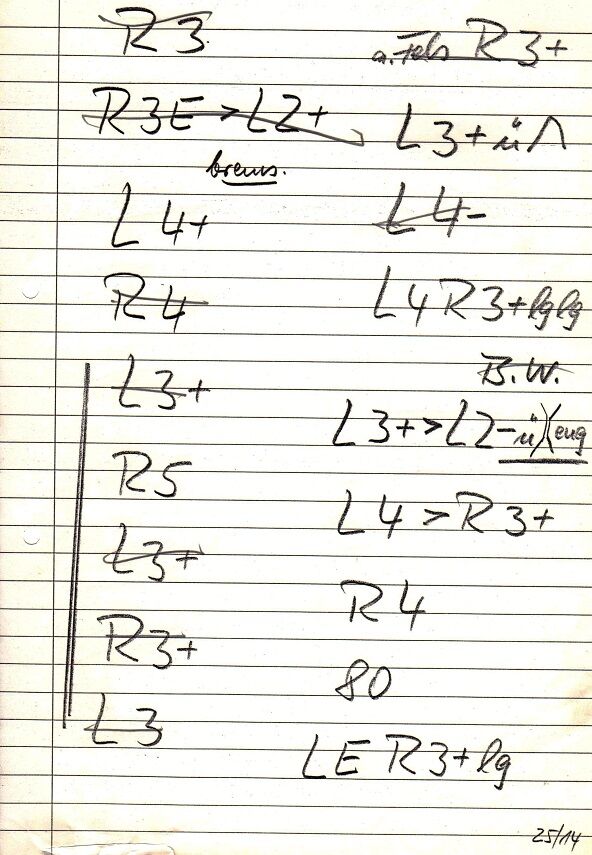 R3
R3E > L2+
brems.
L4+
R4
L3+
R5
L3+
R3+
L3
a. Fels R3+
L3+ ü Λ
L4-
L4 R3+ lg lg
B.W.
L3+ > L2- ü )( eng
L4 > R3+
R4
80
LE R3+ lg
25/14